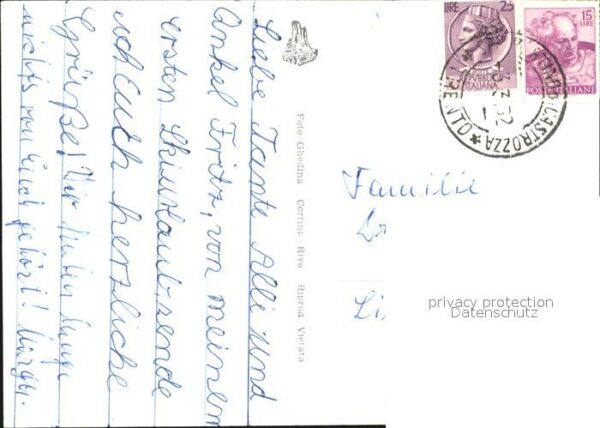 Liebe Tante Alli und
Onkel Fritz, von meinem
ersten Skiurlaub sende
ich Euch herzliche
Grüße! Wir haben lange
nichts von Euch gehört!
Foto Ghedina Cortina Riva Riprod Vietata
LIRE 25
REPUBBLICA
ITALIANA
15
LIRE
POSTE ITALIANE
CASTROZZA
TRENTO
Familie
privacy protection
Datenschutz